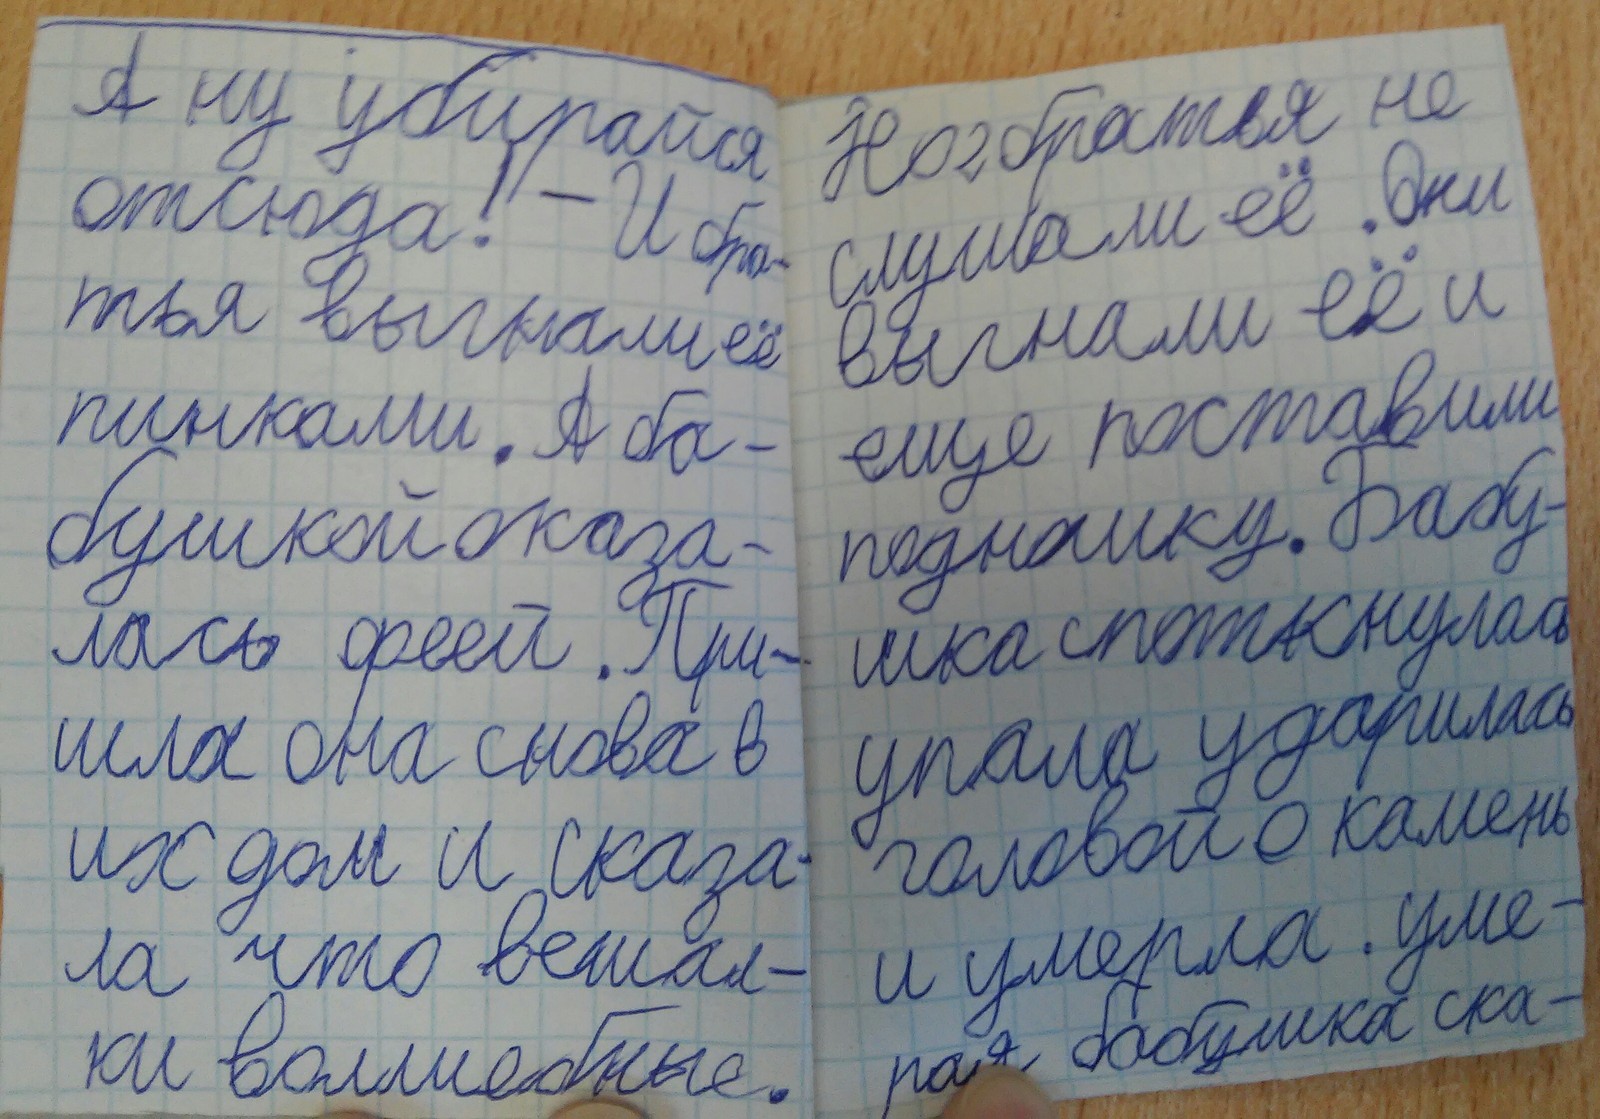 А ну убирайся
отсюда! – И бра-
тья выгнали её
пинками. А ба-
бушкой оказа-
лась феей. При-
шла она снова в
их дом и сказа-
ла что вешал-
ки волшебные.
Но братья не
слушали её. Они
выгнали её и
еще поставили
подножку. Бабу-
шка споткнулась
упала ударилась
головой о камень
и умерла. уме-
рая бабушка ска-